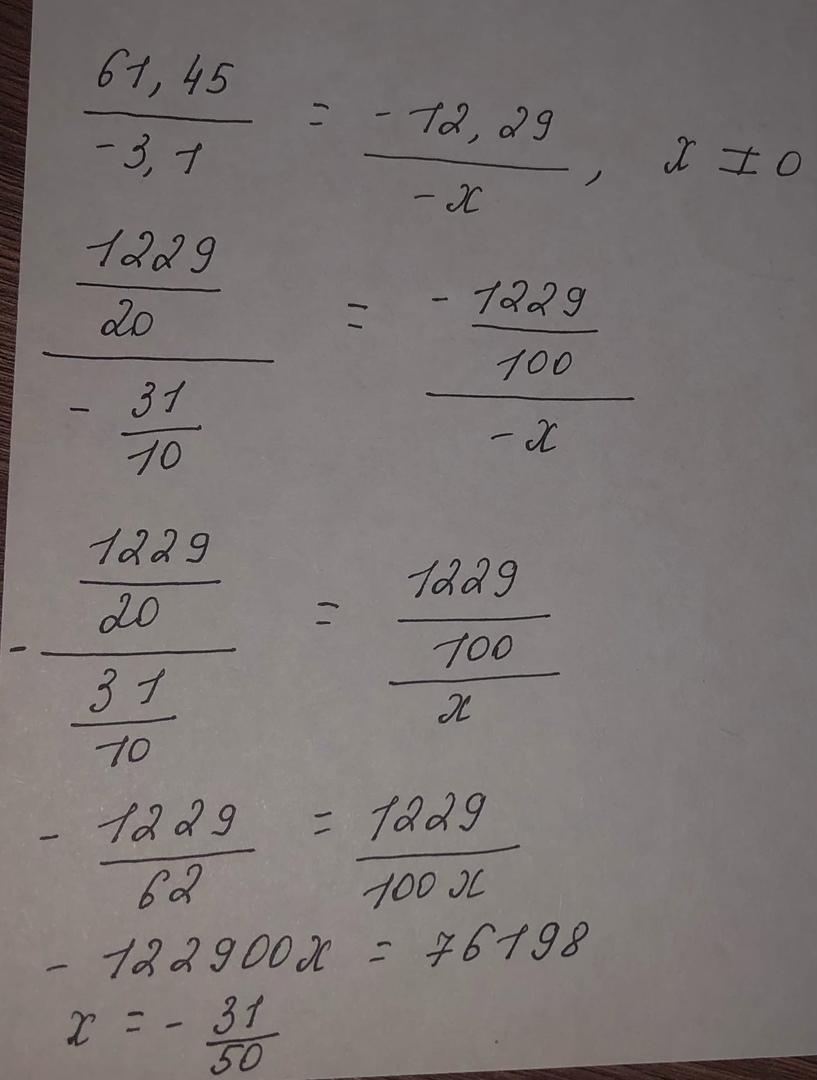 61,45 / -3,1 = -12,29 / -x , x ≠ 0
(1229/20) / (-31/10) = (-1229/100) / (-x)
-(1229/20) / (31/10) = (1229/100) / x
-1229/62 = 1229/100x
-122900x = 76198
x = -31/50